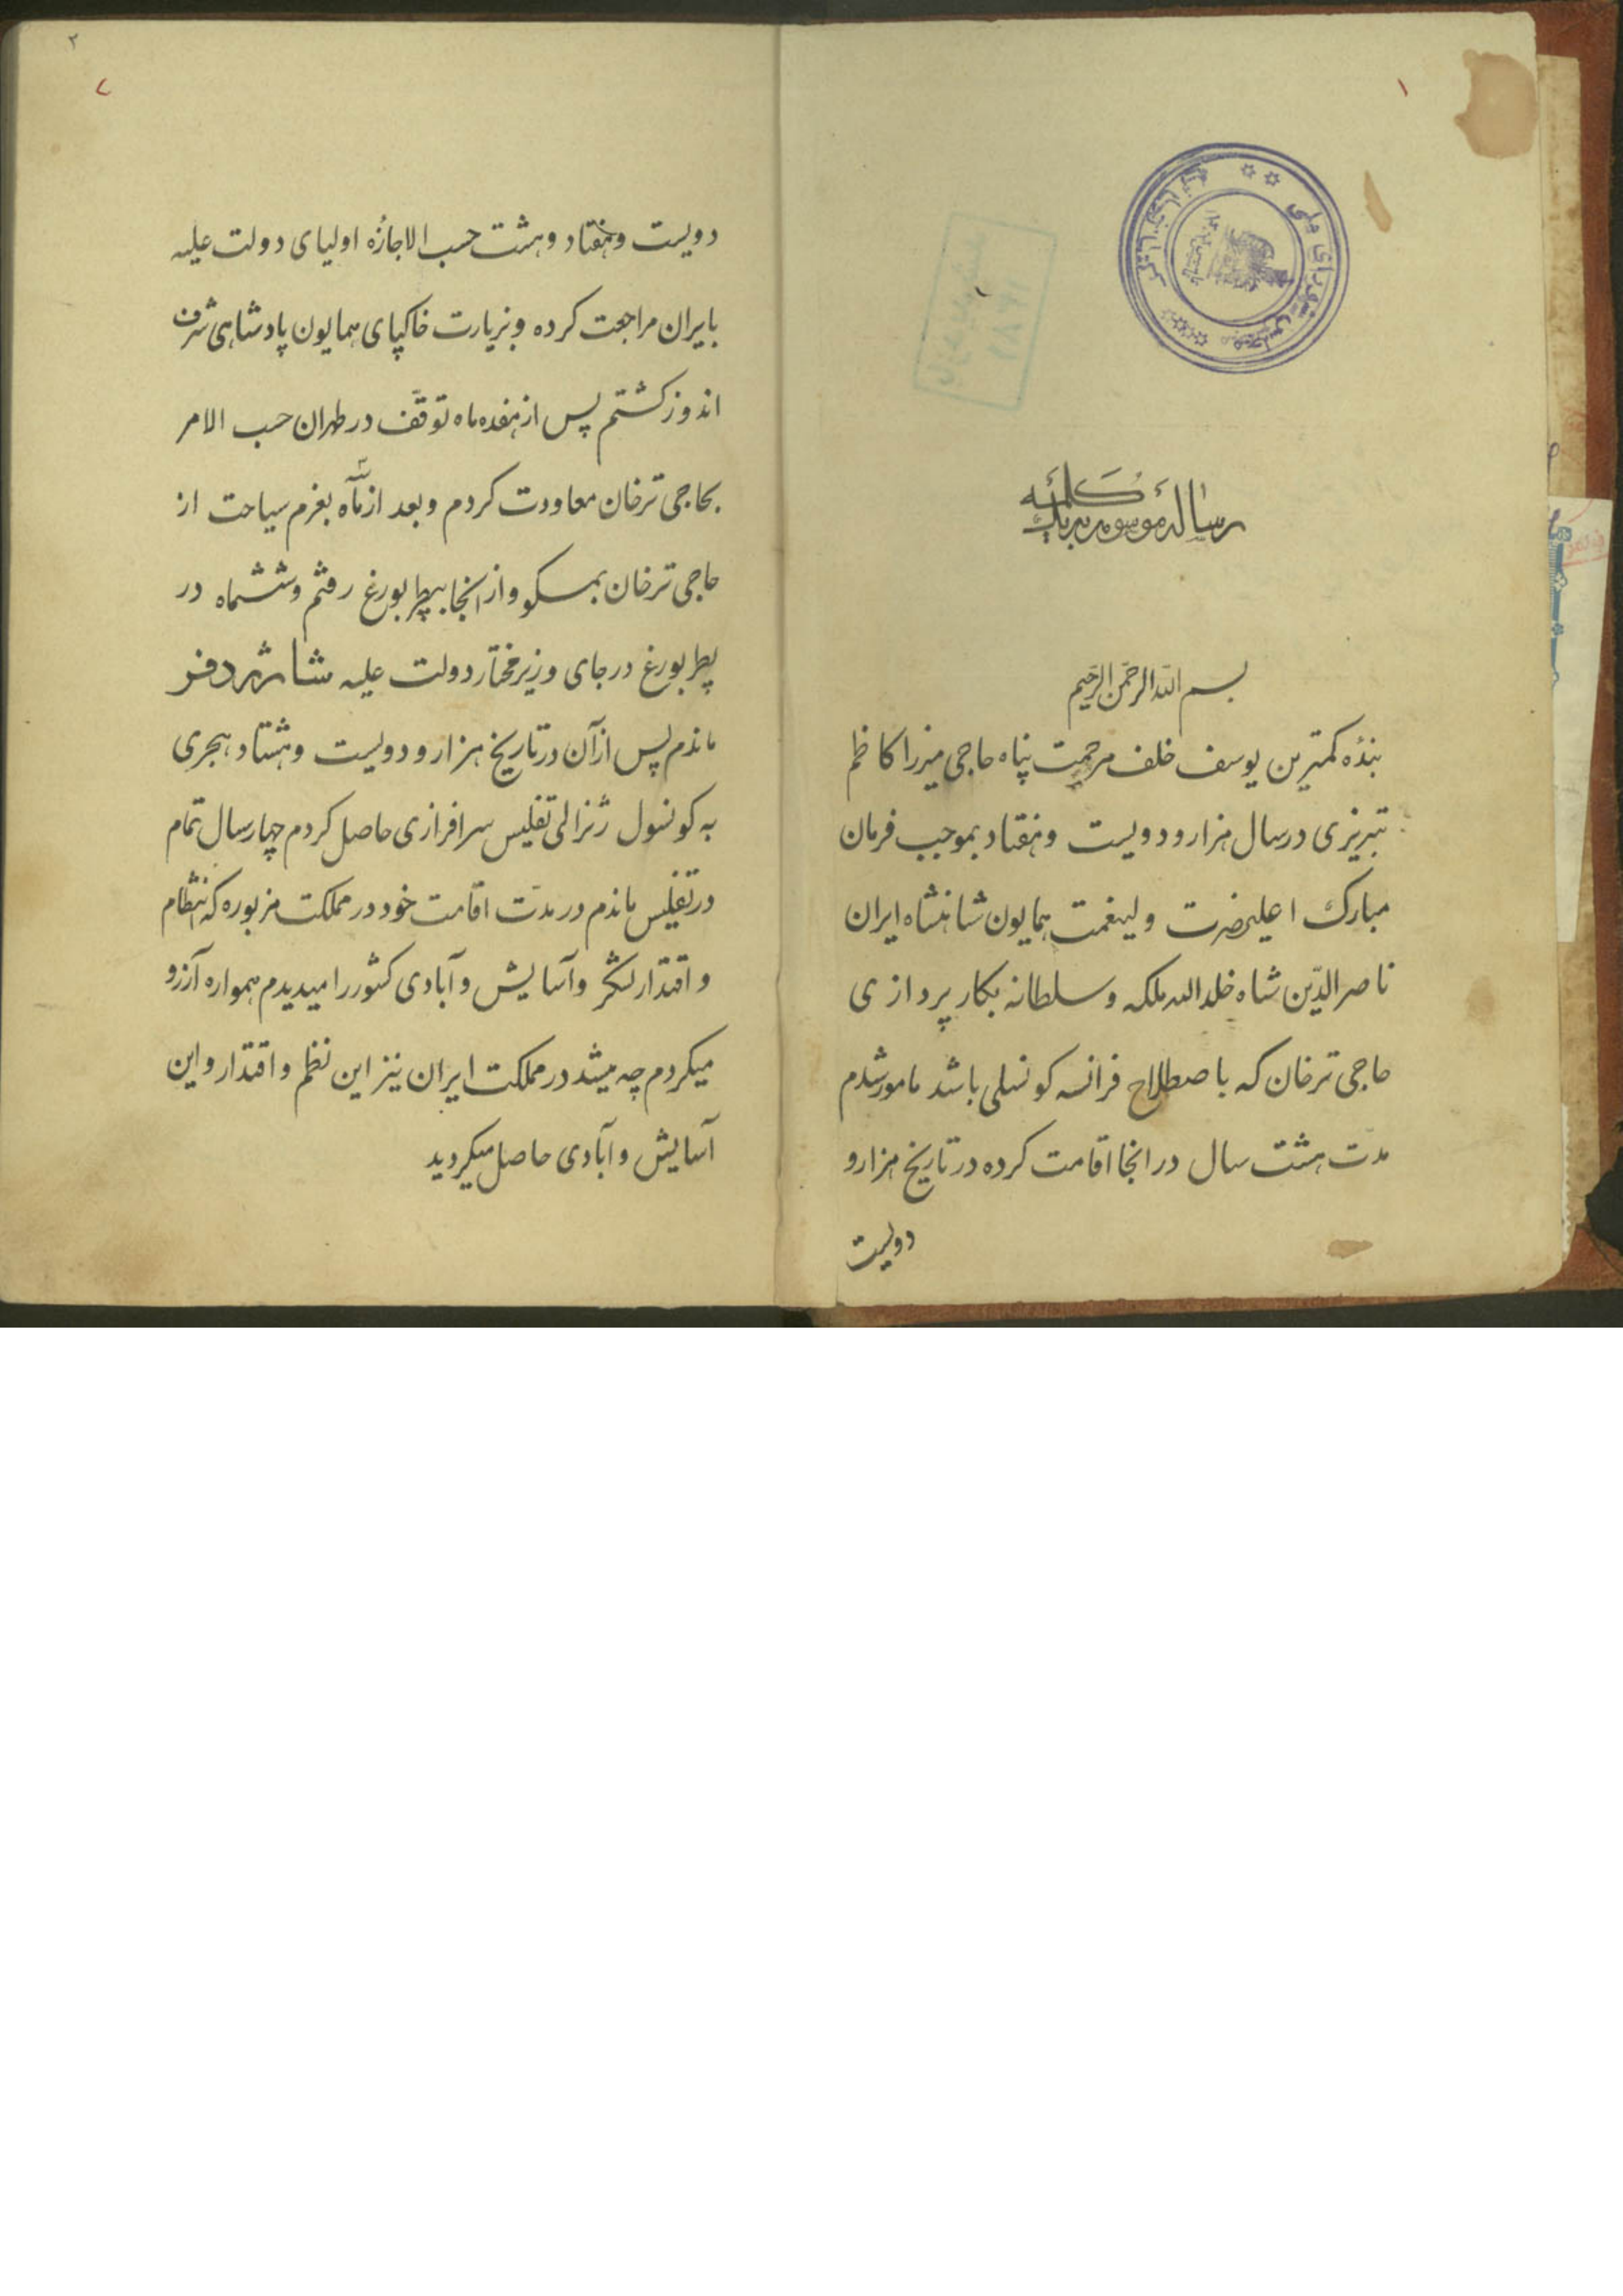 ۱
رسالهٔ موسومه بیک کلمه
بسم الله الرحمن الرحیم
بندهٔ کمترین یوسف خلف مرحمت پناه حاجی میرزا کاظم
تبریزی در سال هزار و دویست و هفتاد بموجب فرمان
مبارک اعلیحضرت ولینعمت همایون شاهنشاه ایران
ناصر الدّین شاه خلد الله ملکه و سلطانه بکار پردازی
حاجی ترخان که باصطلاح فرانسه کونسلی باشد مامور شدم
مدت هشت سال در انجا اقامت کرده در تاریخ هزار و
دویست
۲
۲
دویست و هفتاد و هشت حسب الاجازهٔ اولیای دولت علیه
بایران مراجعت کرده و بزیارت خاکپای همایون پادشاهی شرف
اندوز کشتم پس از هفده ماه توقّف در طهران حسب الامر
بحاجی ترخان معاودت کردم و بعد از سه ماه بعزم سیاحت از
حاجی ترخان بمسکو و از انجا بپطربورغ رفتم و ششماه در
پطربورغ در جای وزیر مختار دولت علیه شارژدفر
ماندم پس از آن در تاریخ هزار و دویست و هشتاد هجری
به کونسول ژنرالی تفلیس سرافرازی حاصل کردم چهار سال تمام
در تفلیس ماندم در مدّت اقامت خود در مملکت مزبوره که انتظام
و اقتدار لشکر و آسایش و آبادی کشور را میدیدم همواره آرزو
میکردم چه میشد در مملکت ایران نیز این نظم و اقتدار و این
آسایش و آبادی حاصل میکردید